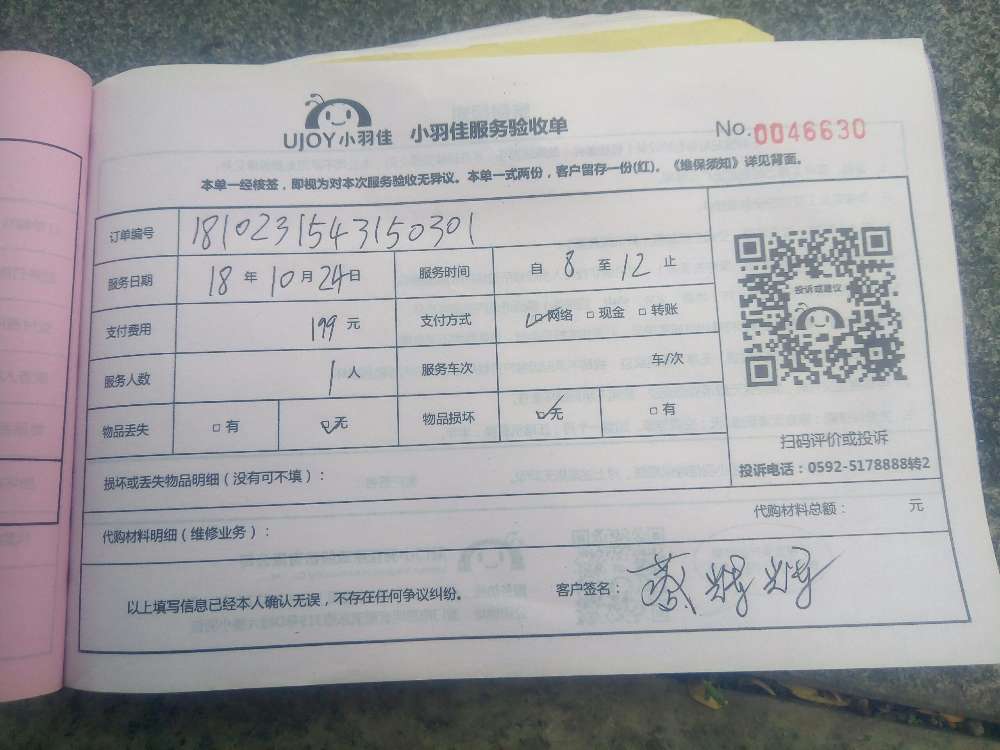 UJOY小羽佳 小羽佳服务验收单 No.0046630
本单一经核签，即视为对本次服务验收无异议。本单一式两份，客户留存一份(红)。《维保须知》详见背面。
订单编号 1810231543150301
服务日期 18年10月24日 服务时间 自8至12止
支付费用 199元 支付方式 ☑网络 □现金 □转账
服务人数 1人 服务车次 车/次
物品丢失 □有 ☑无 物品损坏 ☑无 □有
投诉或建议
扫码评价或投诉
投诉电话：0592-5178888转2
损坏或丢失物品明细（没有可不填）：
代购材料明细（维修业务）： 代购材料总额： 元
以上填写信息已经本人确认无误，不存在任何争议纠纷。 客户签名：蔡辉辉